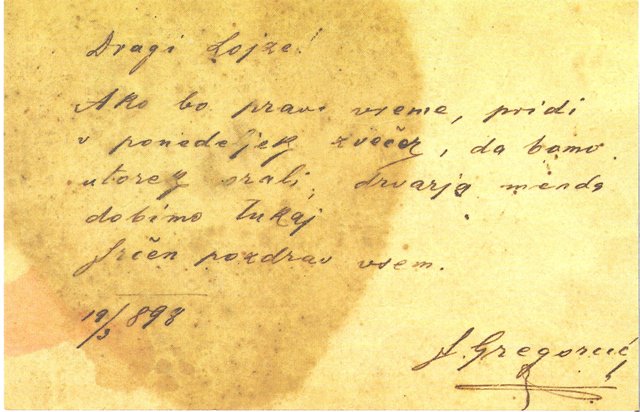 Dragi Lojze!
Ako bo pravo vreme, pridi
v ponedeljek zvečer, da bomo
utorek orali, drvarja menda
dobimo tukaj
Srčen pozdrav vsem.
19/3 898
S. Gregorčič